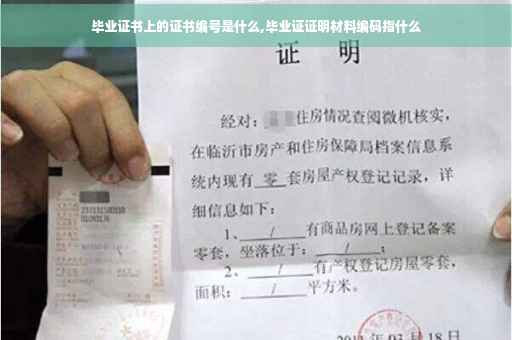 毕业证书上的证书编号是什么,毕业证证明材料编码指什么
证 明
经对: 住房情况查阅微机核实,
在临沂市房产和住房保障局档案信息系
统内现有 零 套房屋产权登记记录,详
细信息如下:
1、 / 有商品房网上登记备案
零套,坐落位于: / ;
2、 / 有产权登记房屋零套,
面积: / 平方米。
03 月 18 日